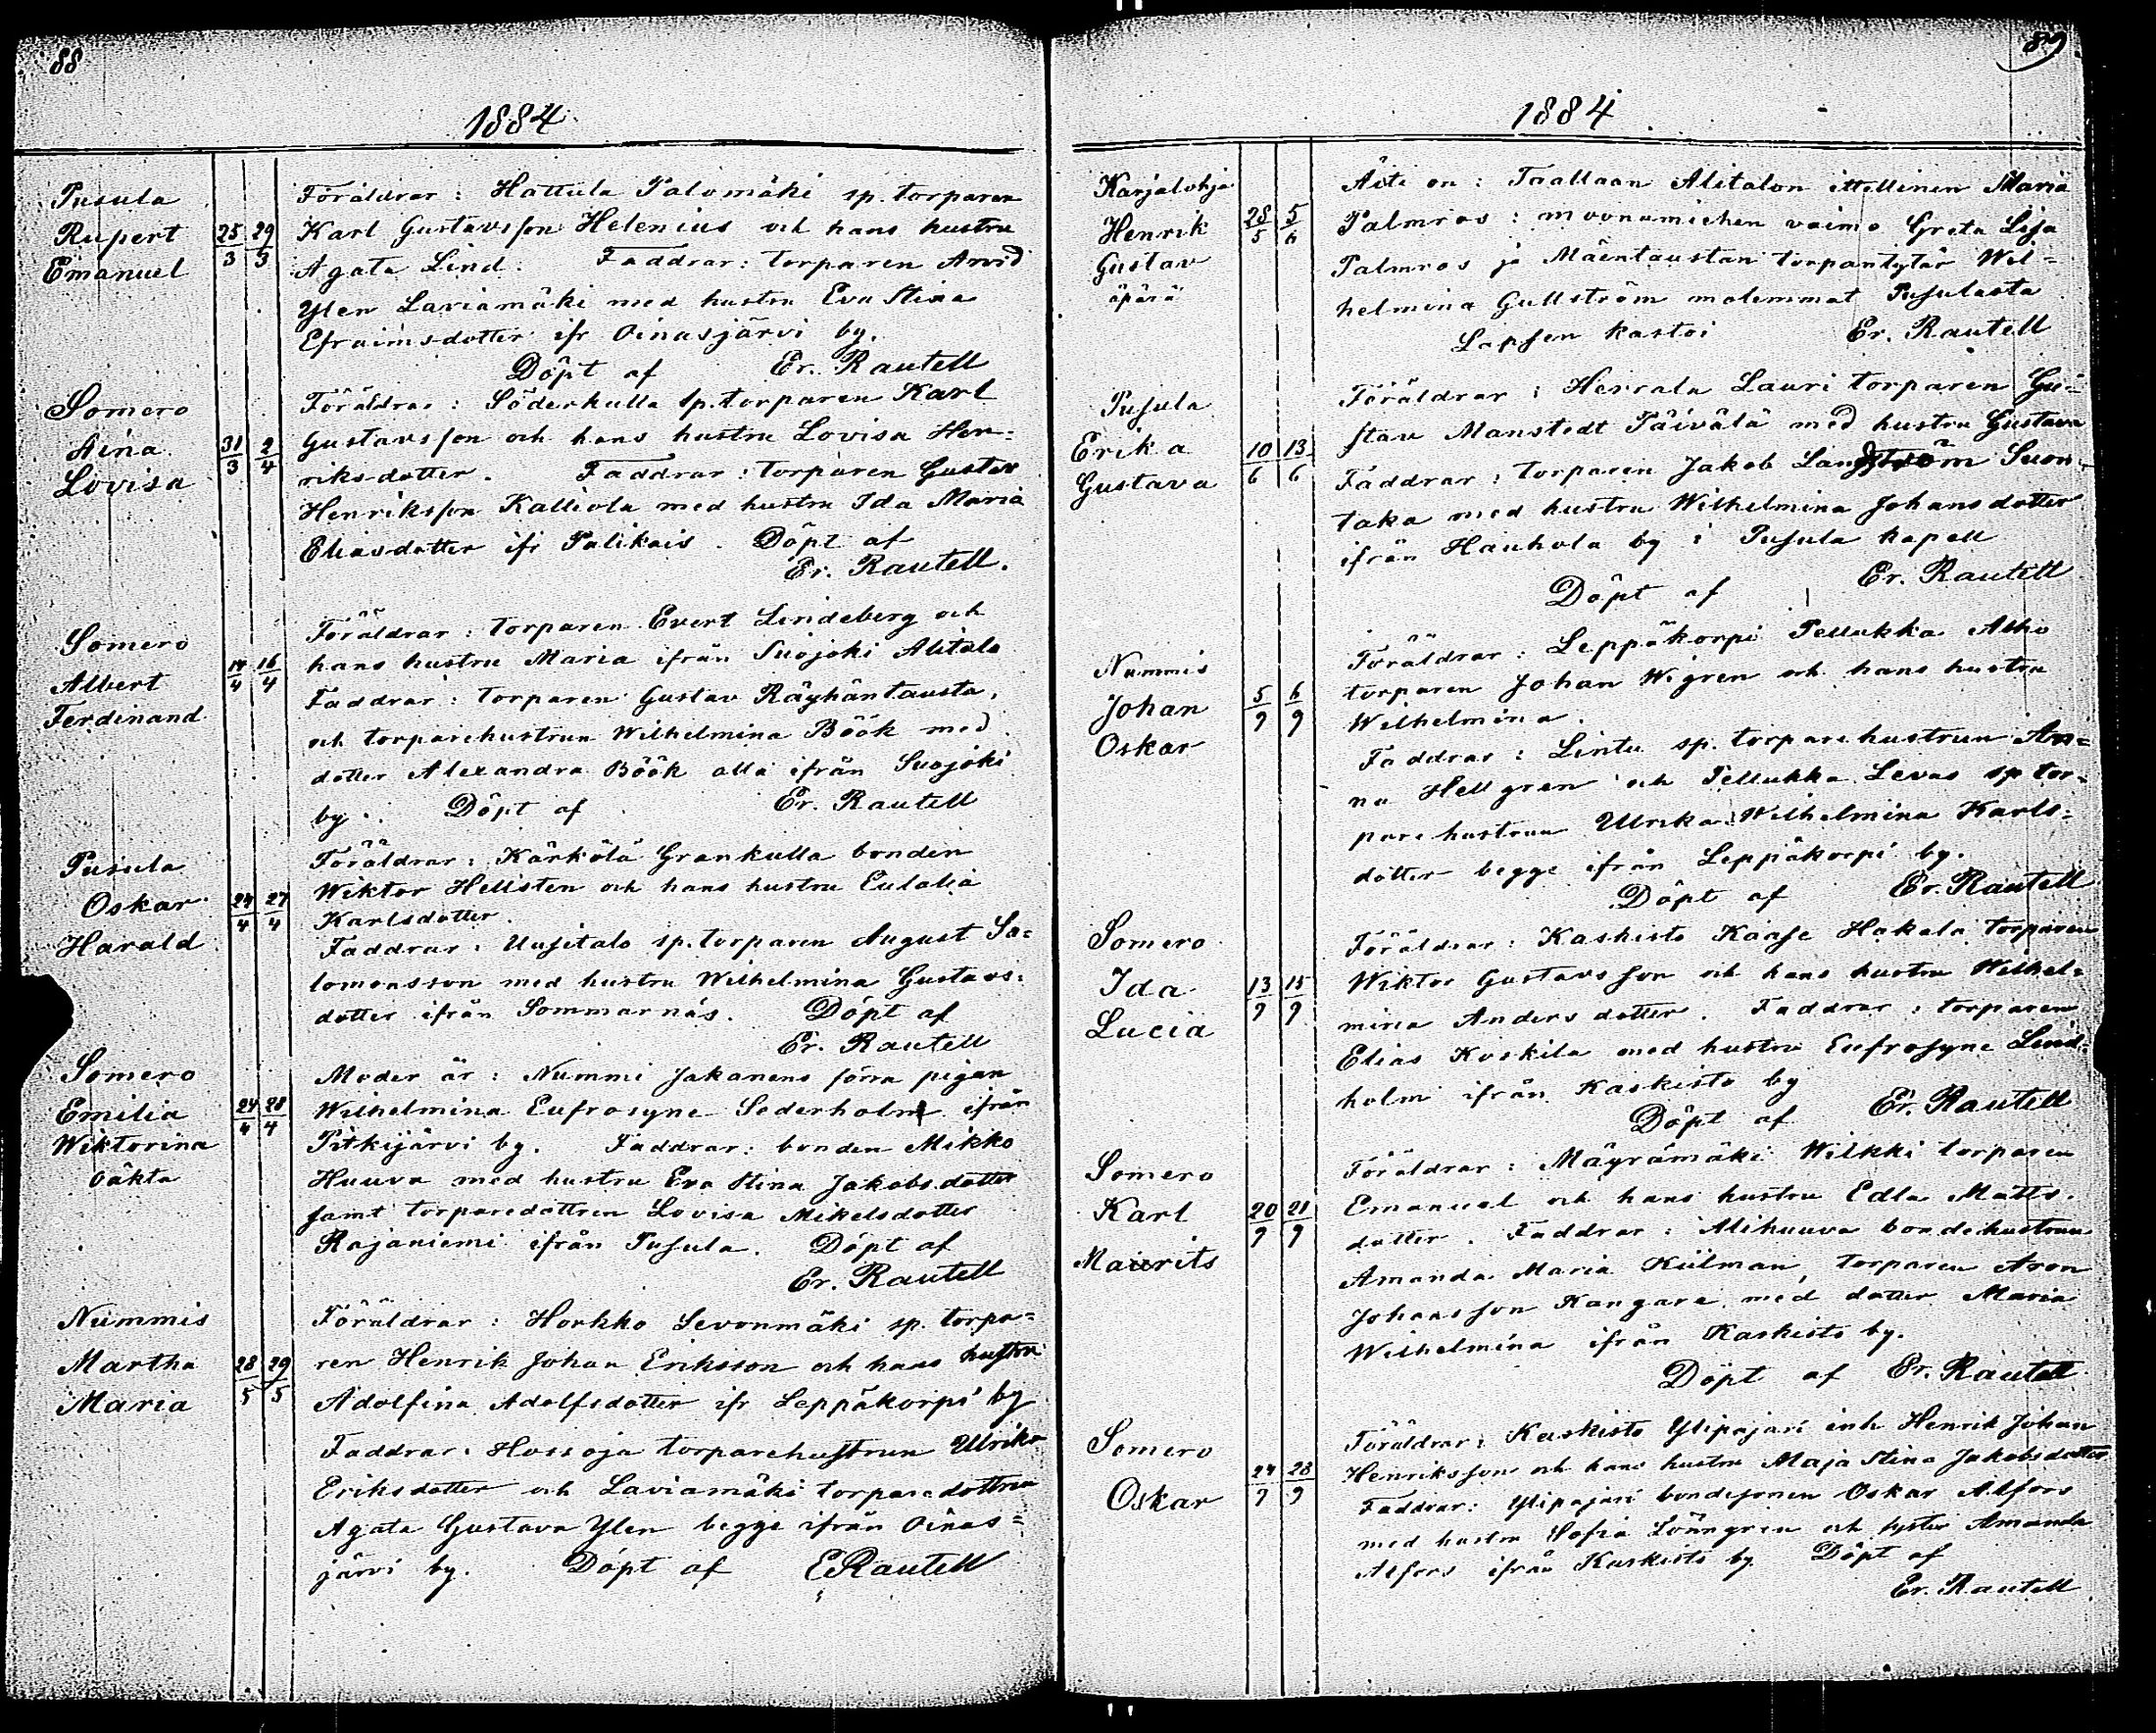 88
1884
Pusula
Rupert
Emanuel
25/3 29/3
Föräldrar: Hattula Palomäki sp. torparen
Karl Gustavsson Helenius och hans hustru
Agata Lind. Faddrar: torparen Arvid
Ylen Laviamäki med hustru Eva Stina
Efraimsdotter ifr Oinasjärvi by.
Döpt af Er. Rautell
Somero
Aina
Lovisa
31/3 2/4
Föräldrar: Söderkulla sp. torparen Karl
Gustavsson och hans hustru Lovisa Hen-
riksdotter. Faddrar: torparen Gustav
Henriksson Kalliola med hustru Ida Maria
Eliasdotter ifr Palikais. Döpt af
Er. Rautell.
Somero
Albert
Ferdinand
14/4 16/4
Föräldrar: torparen Evert Lindeberg och
hans hustru Maria ifrån Suojoki Alitalo
Faddrar: torparen Gustav Räyhäntausta,
och torparehustrun Wilhelmina Böök med
dotter Alexandra Böök alla ifrån Suojoki
by. Döpt af Er. Rautell
Pusula
Oskar
Harald
24/4 27/4
Föräldrar: Kärkölä Grankulla bonden
Wiktor Hellsten och hans hustru Eulalia
Karlsdotter.
Faddrar: Uusitalo sp. torparen August Sa-
lomonsson med hustru Wilhelmina Gustavs-
dotter ifrån Sommarnäs. Döpt af
Er. Rautell
Somero
Emilia
Wiktorina
oäkta
24/4 28/4
Moder är: Nummi Jakanens förra pigan
Wilhelmina Eufrosyne Soderholm ifrån
Pitkijärvi by. Faddrar: bonden Mikko
Huuva med hustru Eva Stina Jakobsdotter
samt torparedottren Lovisa Mikelsdotter
Rajaniemi ifrån Pusula. Döpt af
Er. Rautell
Nummis
Martha
Maria
28/5 29/5
Föräldrar: Horkko Levonmäki sp. torpa-
ren Henrik Johan Eriksson och hans hustru
Adolfina Adolfsdotter ifr Leppäkorpi by
Faddrar: Hossoja torparehustrun Ulrika
Eriksdotter och Laviamäki torparedottren
Agata Gustava Ylen begge ifrån Oinas-
järvi by. Döpt af E Rautell
89
1884
Karjalohja
Henrik
Gustav
äpärä
28/5 5/6
Äiti on: Taallaan Alitalon ittellinen Maria
Palmros: muonamiehen vaimo Greta Lisa
Palmros ja Mäentaustan torpantytär Wil-
helmina Gullström molemmat Pusulasta
Lapsen kastoi Er. Rautell
Pusula
Erika
Gustava
10/6 13/6
Föräldrar: Herrala Lauri torparen Gu-
stav Manstedt Päivälä med hustru Gustava
Faddrar: torparen Jakob Landström Suon-
taka med hustru Wilhelmina Johansdotter
ifrån Hauhola by i Pusula kapell
Döpt af Er. Rautell
Nummis
Johan
Oskar
5/9 6/9
Föräldrar: Leppäkorpi Pellukka Alho
torparen Johan Wigren och hans hustru
Wilhelmina.
Faddrar: Lintu sp. torparehustrun An-
na Hellgren och Pellukka Levas sp tor-
parehustrun Ulrika Wilhelmina Karls-
dotter begge ifrån Leppäkorpi by.
Döpt af Er. Rautell
Somero
Ida
Lucia
13/9 15/9
Föräldrar: Kaskisto Kaase Hakala torparen
Wiktor Gustavsson och hans hustru Wilhel-
mina Andersdotter. Faddrar: torparen
Elias Koskila med hustru Eufrosyne Lind-
holm ifrån Kaskisto by
Döpt af Er. Rautell
Somero
Karl
Maurits
20/9 21/9
Föräldrar: Mäyrämäki Wilkki torparen
Emanuel och hans hustru Edla Matts-
dotter. Faddrar: Alihuuva bondehustrun
Amanda Maria Kiilman, torparen Aron
Johansson Kangare med dotter Maria
Wilhelmina ifrån Kaskisto by.
Döpt af Er. Rautell
Somero
Oskar
24/9 28/9
Föräldrar: Kaskisto Ylipajari inh Henrik Johan
Henriksson och hans hustru Maja Stina Jakobsdotter
Faddrar: Ylipajari bondesonen Oskar Alfors
med hustru Sofia Lönngren och syster Amanda
Alfors ifrån Kaskisto by Döpt af
Er. Rautell